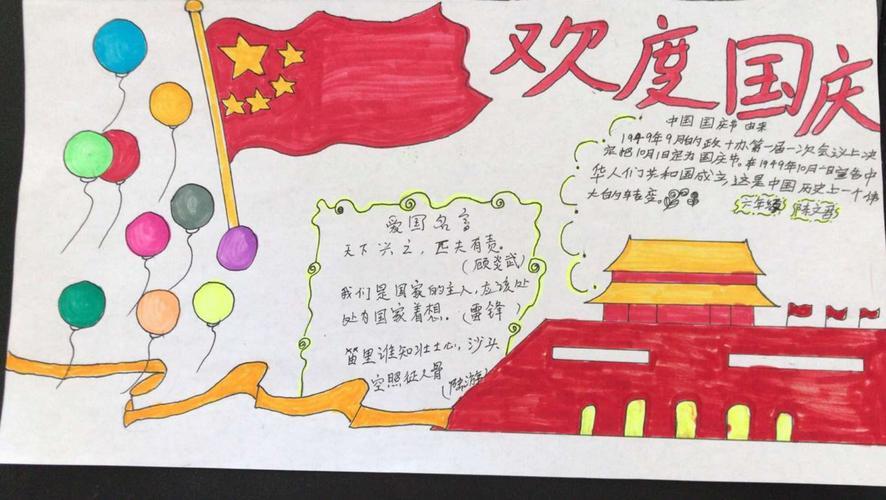 欢度国庆
中国国庆节由来
1949年9月的政十办第一届一次会议上决
定把10月1日定为国庆节。在1949年10月一日宣告中
华人们共和国成立,这是中国历史上一个伟
大的转变。
六年级 陈文
爱国名言
天下兴之,匹夫有责。
(顾炎武)
我们是国家的主人,应该处
处为国家着想。(雷锋)
笛里谁知壮士心,沙头
空照征人骨(陆游)